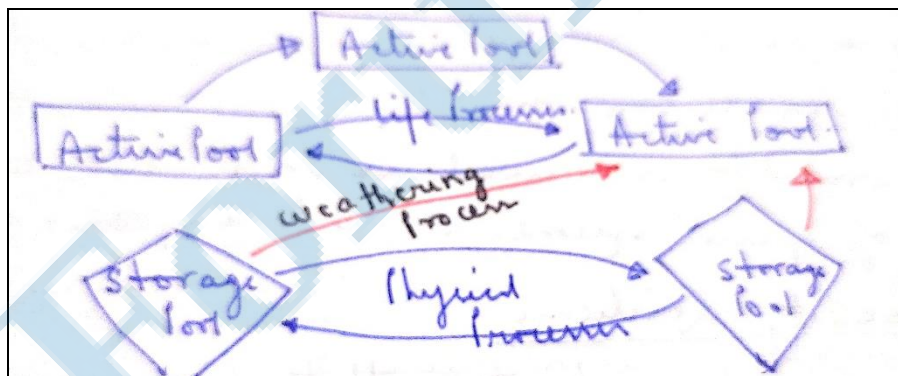 Active Pool
Life Processes
Active Pool
Active Pool
weathering
Process
Storage
Pool
Physical
Processes
Storage
Pool